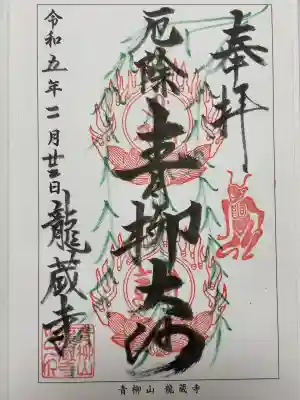 奉拝
厄除 青柳大師
令和五年二月廿三日
龍蔵寺
青柳山 龍蔵寺